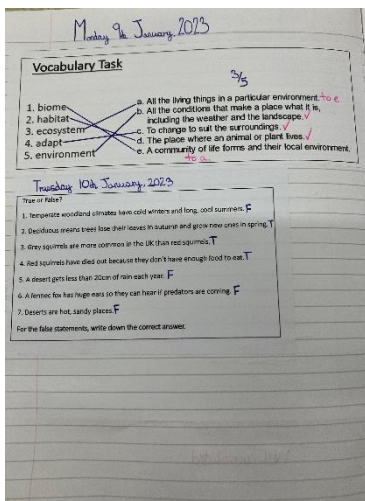 Monday 9th January, 2023
Vocabulary Task
3/5
1. biome
2. habitat
3. ecosystem
4. adapt
5. environment
a. All the living things in a particular environment. to e
b. All the conditions that make a place what it is,
including the weather and the landscape. ✓
c. To change to suit the surroundings. ✓
d. The place where an animal or plant lives. ✓
e. A community of life forms and their local environment.
to a
10th January, 2023
True or False?
1. Temperate woodland climates have cold winters and long, cool summers. F
2. Deciduous means trees lose their leaves in autumn and grow new ones in spring. T
3. Grey squirrels are more common in the UK than red squirrels. T
4. Red squirrels have died out because they don't have enough food to eat. T
5. A desert gets less than 20cm of rain each year. F
6. A fennec fox has huge ears so they can hear if predators are coming. F
7. Deserts are hot, sandy places. F
For the false statements, write down the correct answer.